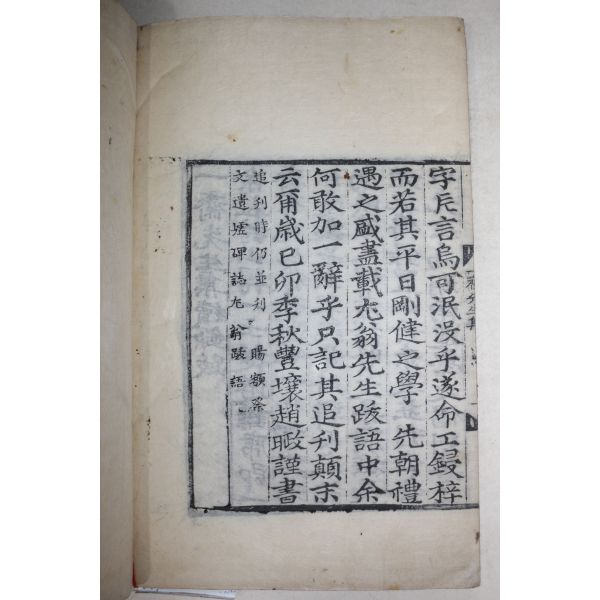 字片言烏可泯没乎遂命工鋟梓
而若其平日剛健之學 先朝禮
遇之盛盡載尤翁先生跋語中余
何敢加一辭乎只記其追刊顛末
云甭歲己卯季秋豐壤趙㬇謹書
追刊時仍並刊 賜額祭
文遺墟碑誌尤翁跋語